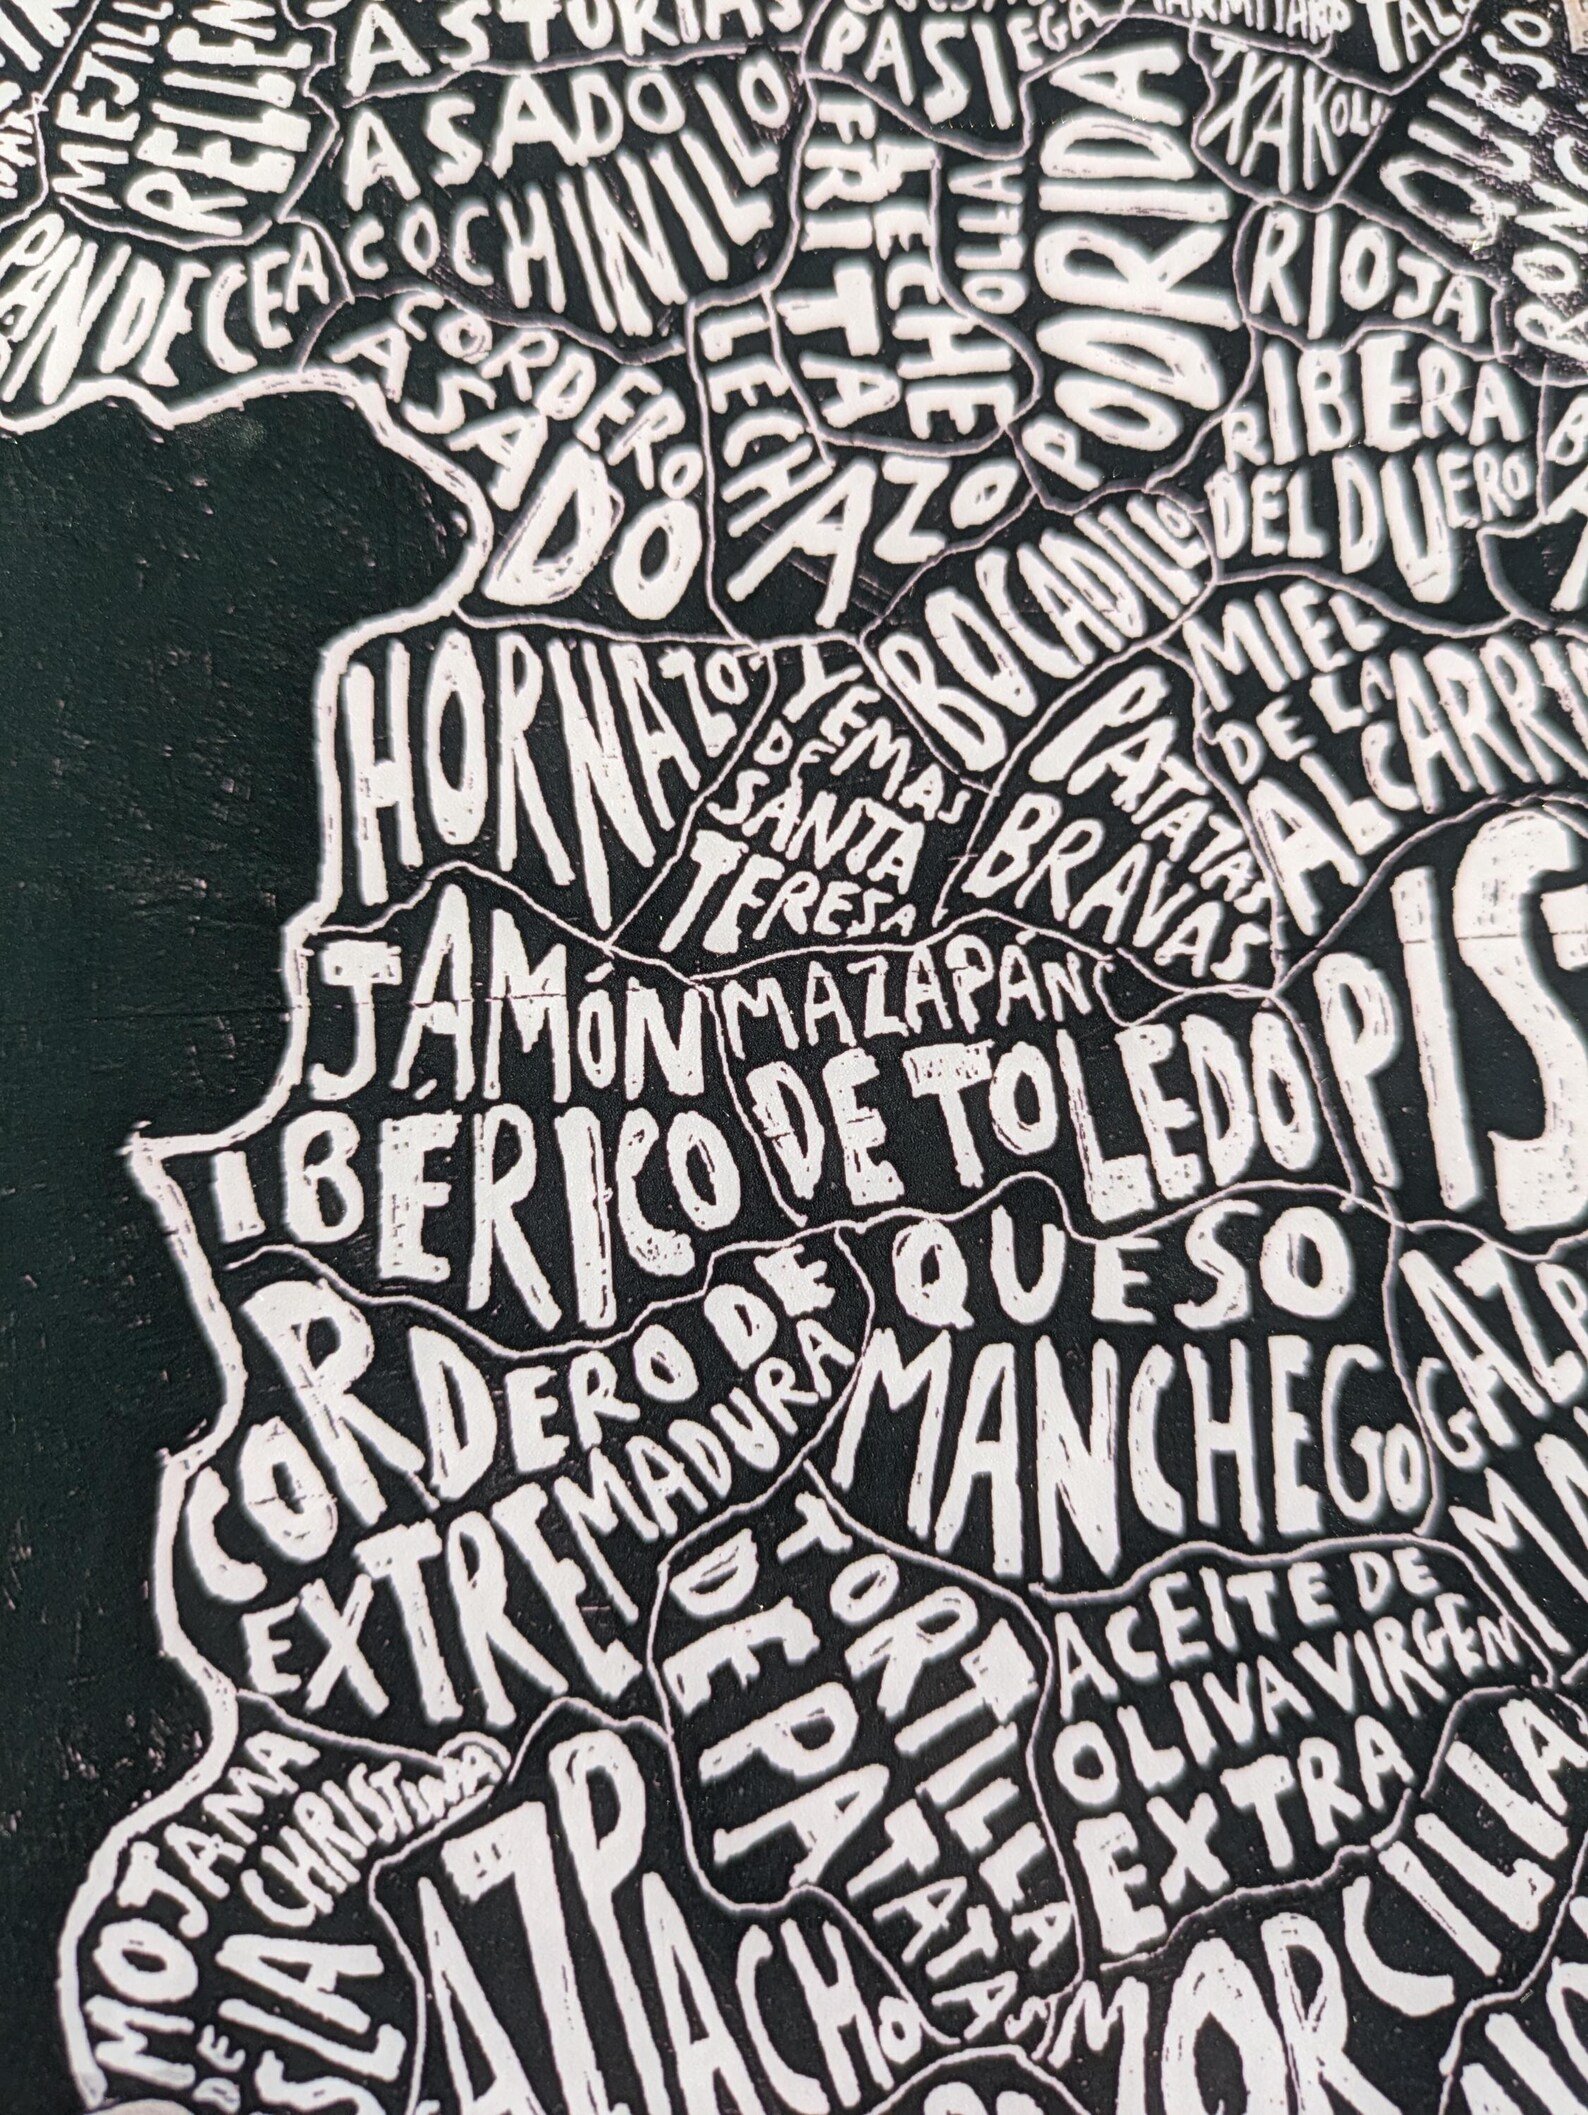 ASTURIAS
PASIEGA
RELLEN
ASADO
COCHINILLO
LECHE
FRITA
OLLA
PODRIDA
TXAKOLI
QUESO
RIOJA
PAN DE CEA
CORDERO
ASADO
LECHAZO
RIBERA
DEL DUERO
BOCADILLO
HORNAZO
YEMAS
DE
SANTA
TERESA
PATATAS
BRAVAS
MIEL
DE LA
ALCARRI
JAMÓN
IBÉRICO
MAZAPÁN
DE TOLEDO
PIS
QUESO
MANCHEGO
GAZP
MA
CORDERO DE
EXTREMADURA
TORTILLA
DE PATATAS
ACEITE DE
OLIVA VIRGEN
EXTRA
MOJAMA
DE ISLA CHRISTINA
AZPIACHO
MORCILLA